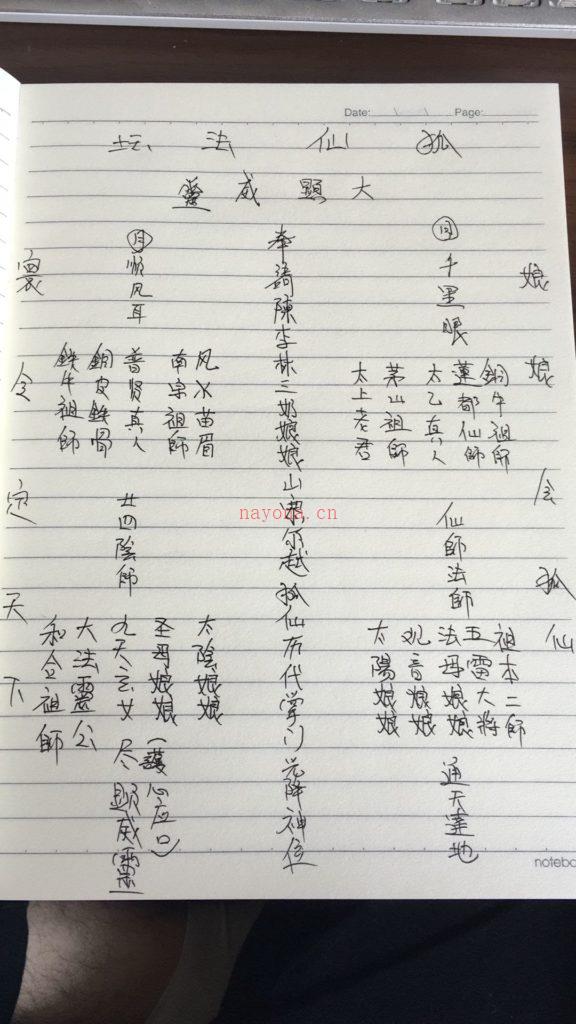 Date: Page:
狐仙法坛
大顯威靈
娘娘会狐仙
日
千里眼
銅牛祖師
蓮都仙師
太乙真人
茅山祖師
太上老君
仙師法師
祖本二師
五雷大將
法母娘娘
观音娘娘
太陽娘娘
通天達地
奉請陳李林三奶娘娘山尔越狐仙历代掌门元降神位
月
順风耳
风火苗眉
南宗祖師
普贤真人
銅皮鉄骨
鉄牛祖師
廿四陰師
太陰娘娘
圣母娘娘
(護心应口)
九天玄女
大法靈公
和合祖師
尽顯威靈
令定天下
notebo
nayona.cn